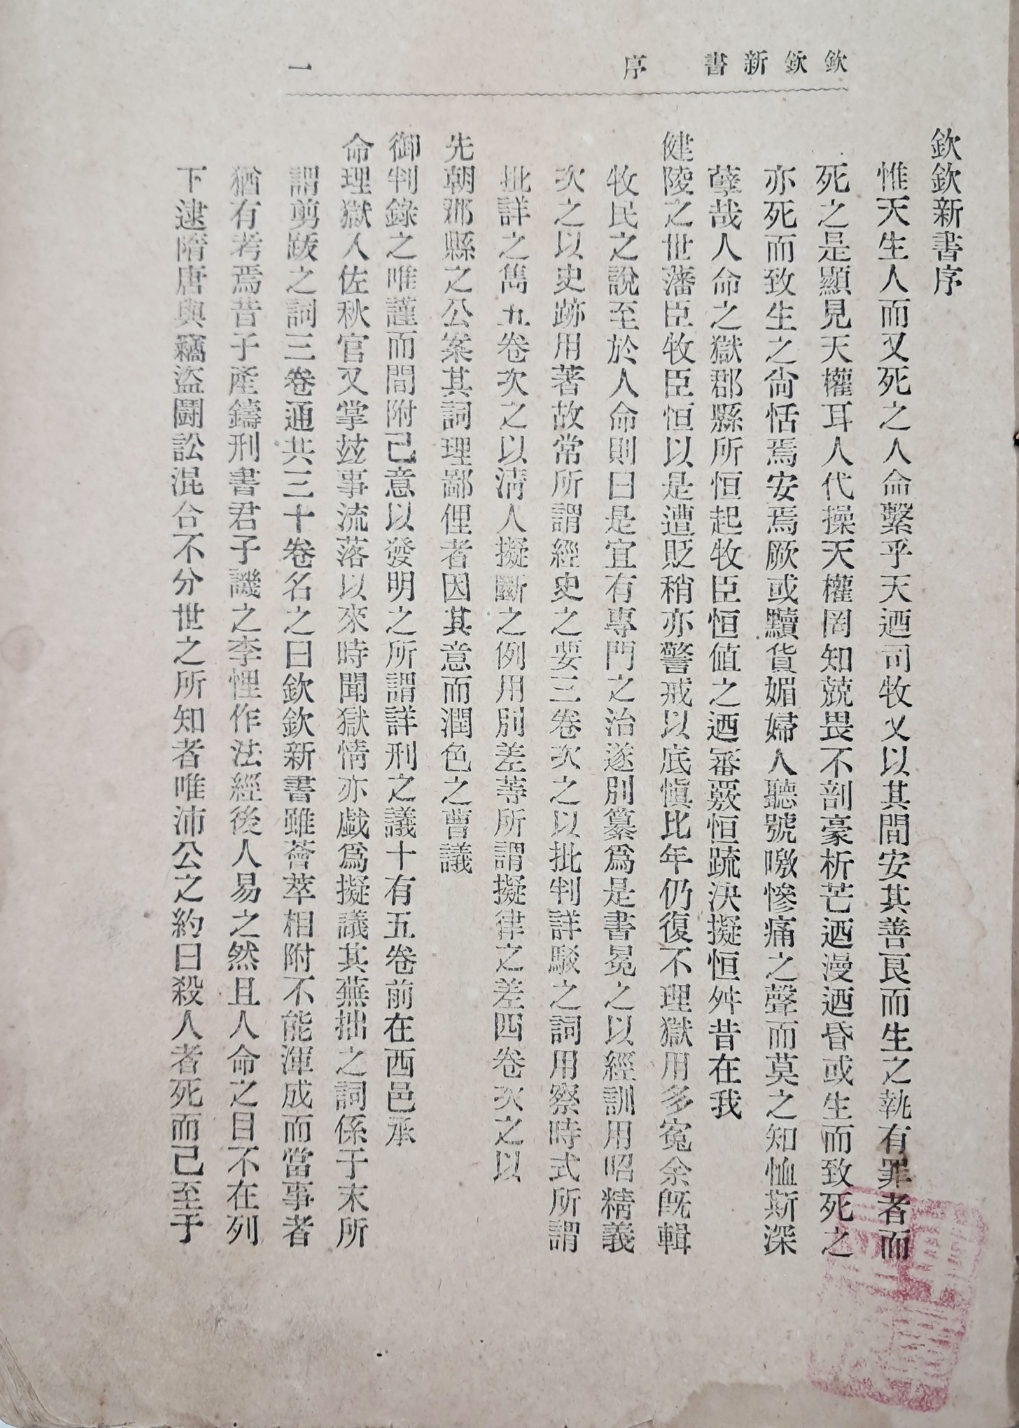 欽欽新書 序 一
欽欽新書序
惟天生人而又死之人命繫乎天迺司牧又以其間安其善良而生之執有罪者而
死之是顯見天權耳人代操天權罔知兢畏不剖豪析芒迺漫迺昏或生而致死之
亦死而致生之尙恬焉安焉厥或黷貨媚婦人聽號噭慘痛之聲而莫之知恤斯深
孽哉人命之獄郡縣所恒起牧臣恒値之迺審覈恒疏決擬恒舛昔在我
健陵之世藩臣牧臣恒以是遭貶稍亦警戒以底愼比年仍復不理獄用多寃余旣輯
牧民之說至於人命則曰是宜有專門之治遂別纂爲是書冕之以經訓用昭精義
次之以史跡用著故常所謂經史之要三卷次之以批判詳駁之詞用察時式所謂
批詳之雋五卷次之以淸人擬斷之例用別差等所謂擬律之差四卷次之以
先朝郡縣之公案其詞理鄙俚者因其意而潤色之曹議
御判錄之唯謹而間附己意以發明之所謂詳刑之議十有五卷前在西邑承
命理獄入佐秋官又掌玆事流落以來時聞獄情亦戱爲擬議其蕪拙之詞係于末所
謂剪跋之詞三卷通共三十卷名之曰欽欽新書雖薈萃相附不能渾成而當事者
猶有考焉昔子產鑄刑書君子譏之李悝作法經後人易之然且人命之目不在列
下逮隋唐與竊盜鬪訟混合不分世之所知者唯沛公之約曰殺人者死而已至于